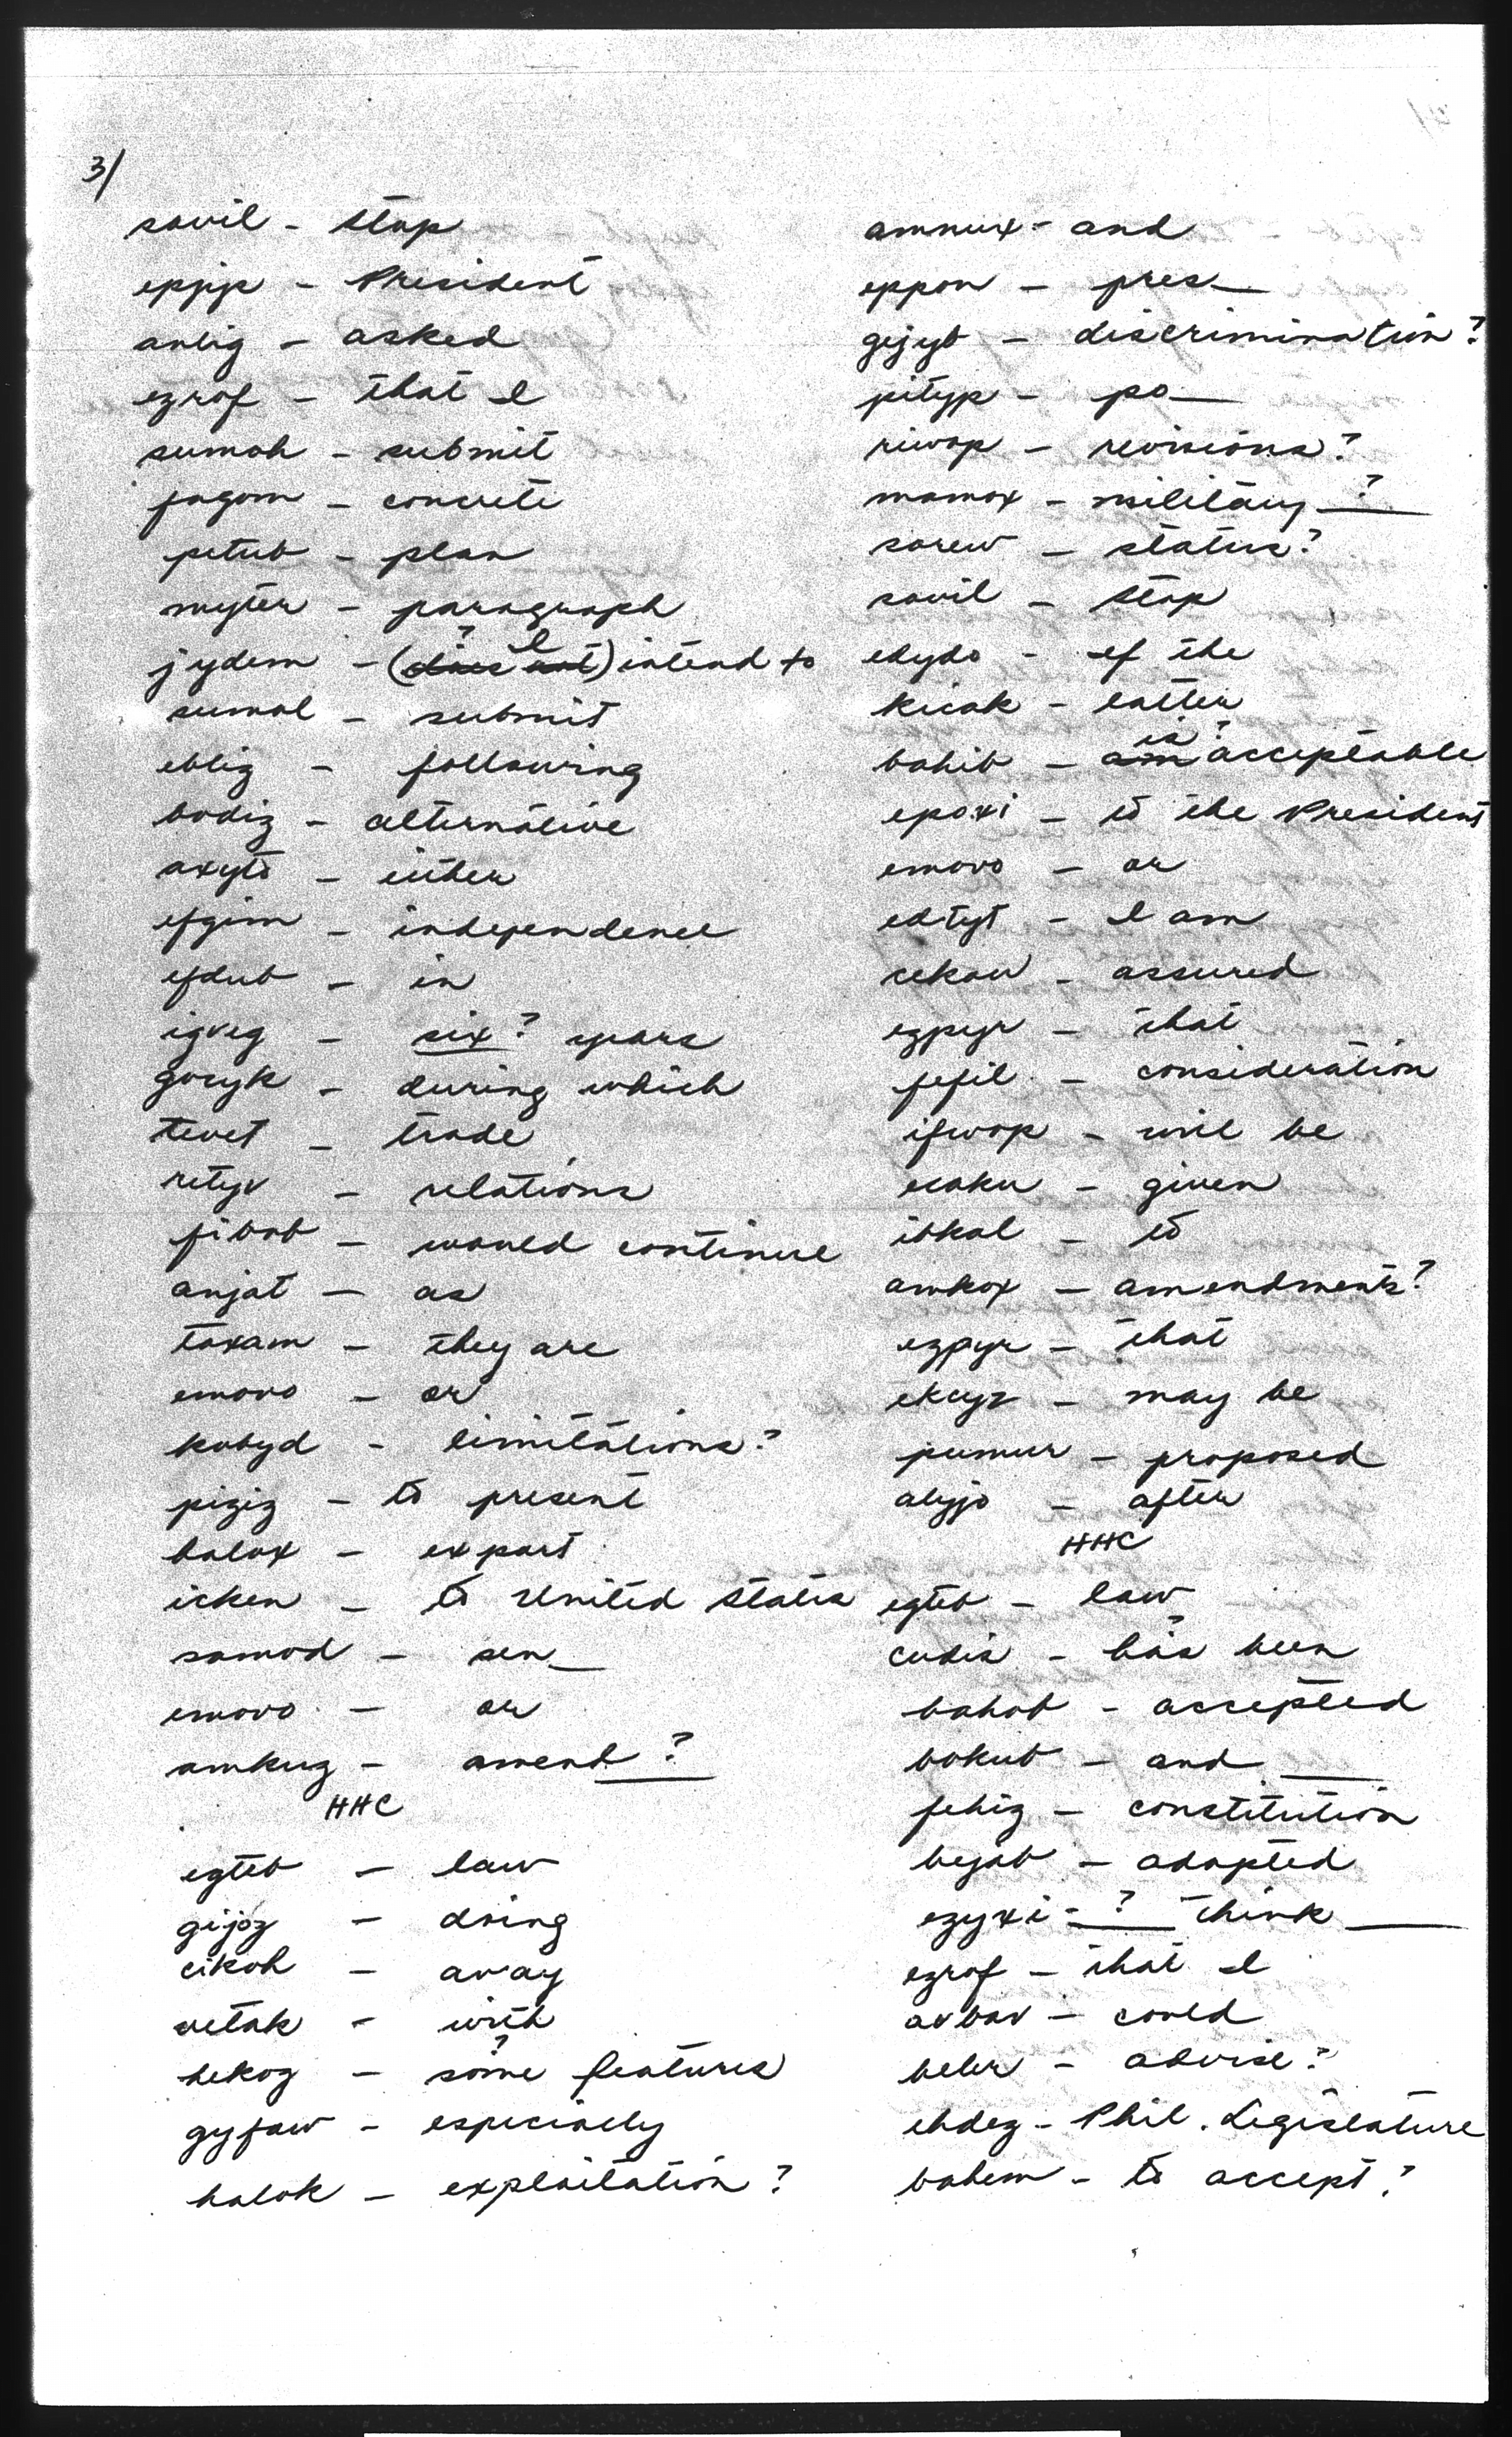 3/
savil - stop
epjip - President
anlig - asked
ezrof - that I
sumoh - submit
jagom - concrete
petub - plan
myter - paragraph
jydem - (does not) ? I intend to
sumol - submit
eblig - following
bodiz - alternative
axyto - either
efgim - independence
efdub - in
igveg - six? years
gocyk - during which
tevet - trade
retyv - relations
fibob - would continue
anjat - as
toxam - they are
emovo - or
kobyd - limitations?
piziz - to present
balox - export
icken - to United States
samod - sen__
emovo - or
amkug - amend__?
HHC
egteb - law
gijoz - doing
cikoh - away
vetak - with
hekog - some? features
gyfaw - especially
halok - exploitation?
amnux - and
eppon - pres__
gejyb - discrimination?
pityp - po__
riwop - revisions?
mamox - military __?
sorew - status?
savil - stop
edydo - if the
kicak - latter
bahib - am is? acceptable
epoxi - to the President
emovo - or
edtyt - I am
cekaw - assured
ezpyr - that
fefil - consideration
ifwop - will be
ecaku - given
ibkal - to
amkox - amendments?
ezpyr - that
ekcyz - may be
pumur - proposed
alyjo - after
HHC
egteb - law
cudis - has? been
bahob - accepted
bokub - and ____
fehiz - constitution
bejab - adopted
ezyxi - __?__ think ____
ezrof - that I
avbav - could
beler - advise?
ehdez - Phil. Legislature
bahem - to accept?